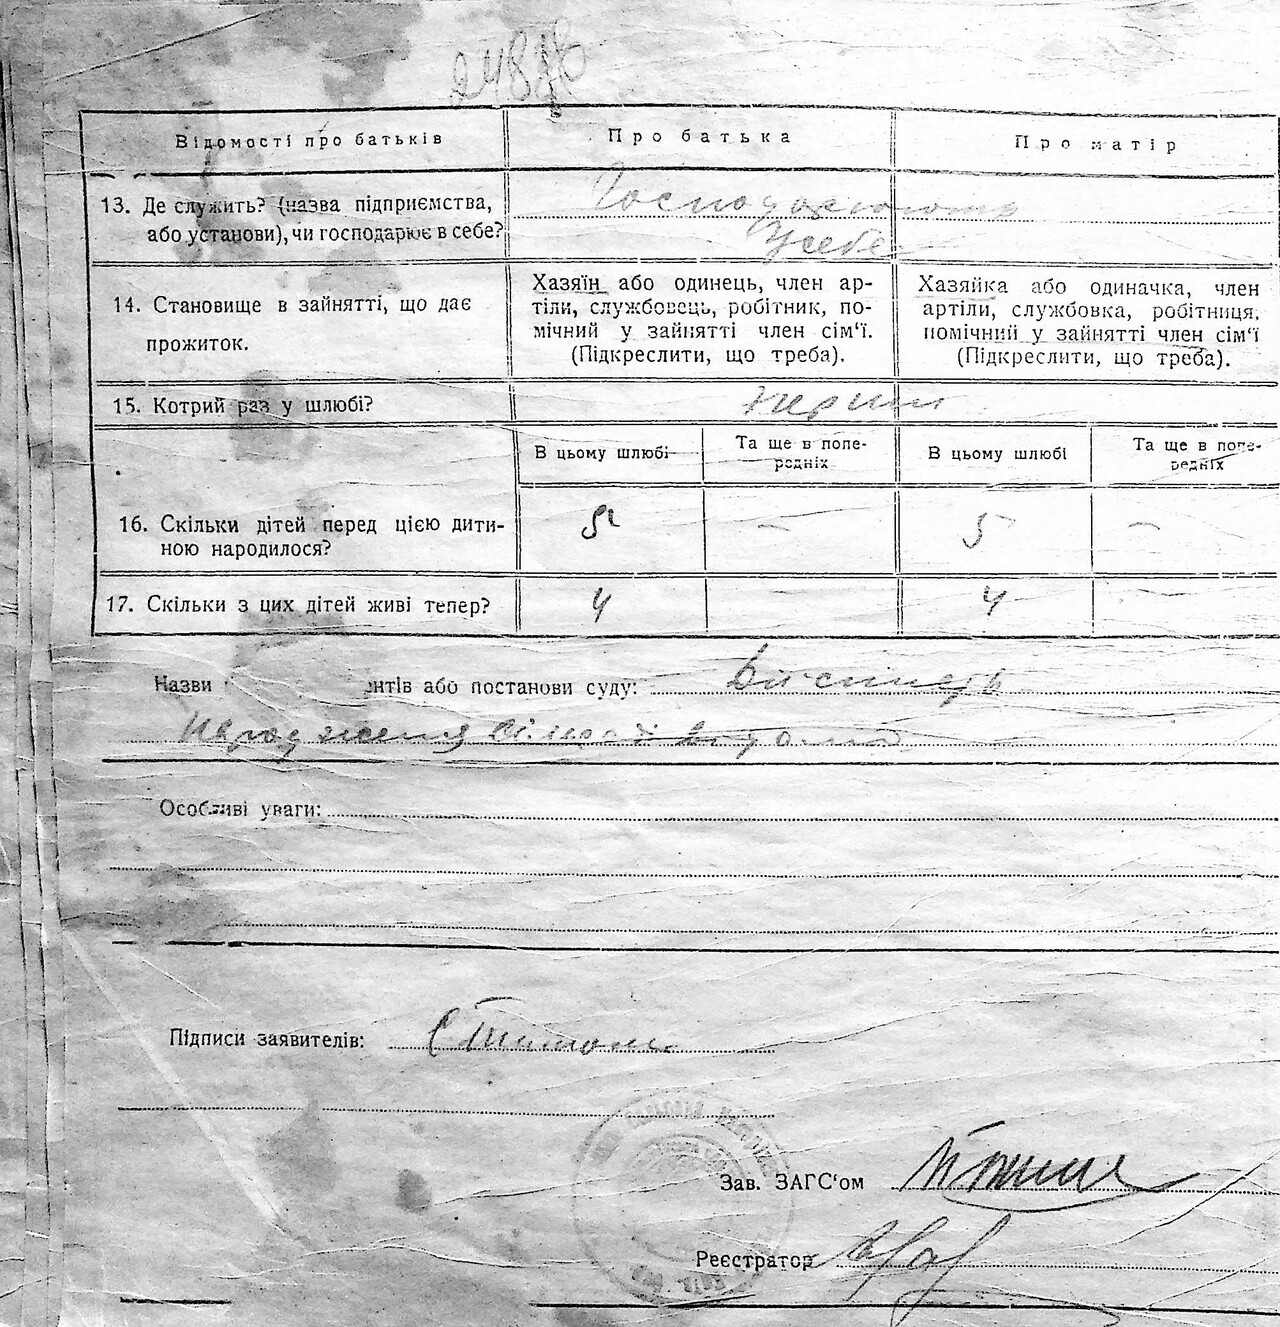 Відомості про батьків
Про батька
Про матір
13. Де служить? (назва підприємства,
або установи), чи господарює в себе?
Господарюють
У себе
14. Становище в зайнятті, що дає
прожиток.
Хазяїн або одинець, член ар-
тіли, службовець, робітник, по-
мічний у зайнятті член сім'ї.
(Підкреслити, що треба).
Хазяйка або одиначка, член
артіли, службовка, робітниця,
помічний у зайнятті член сім'ї
(Підкреслити, що треба).
15. Котрий раз у шлюбі?
перший
В цьому шлюбі
Та ще в попе-
редніх
В цьому шлюбі
Та ще в попе-
редніх
16. Скільки дітей перед цією дити-
ною народилося?
5 – 5 –
17. Скільки з цих дітей живі тепер?
4 – 4 –
Назви нтів або постанови суду: Дійсність
народження сільраді відома
Особливі уваги:
Підписи заявителів:
Зав. ЗАГС'ом
Реєстратор